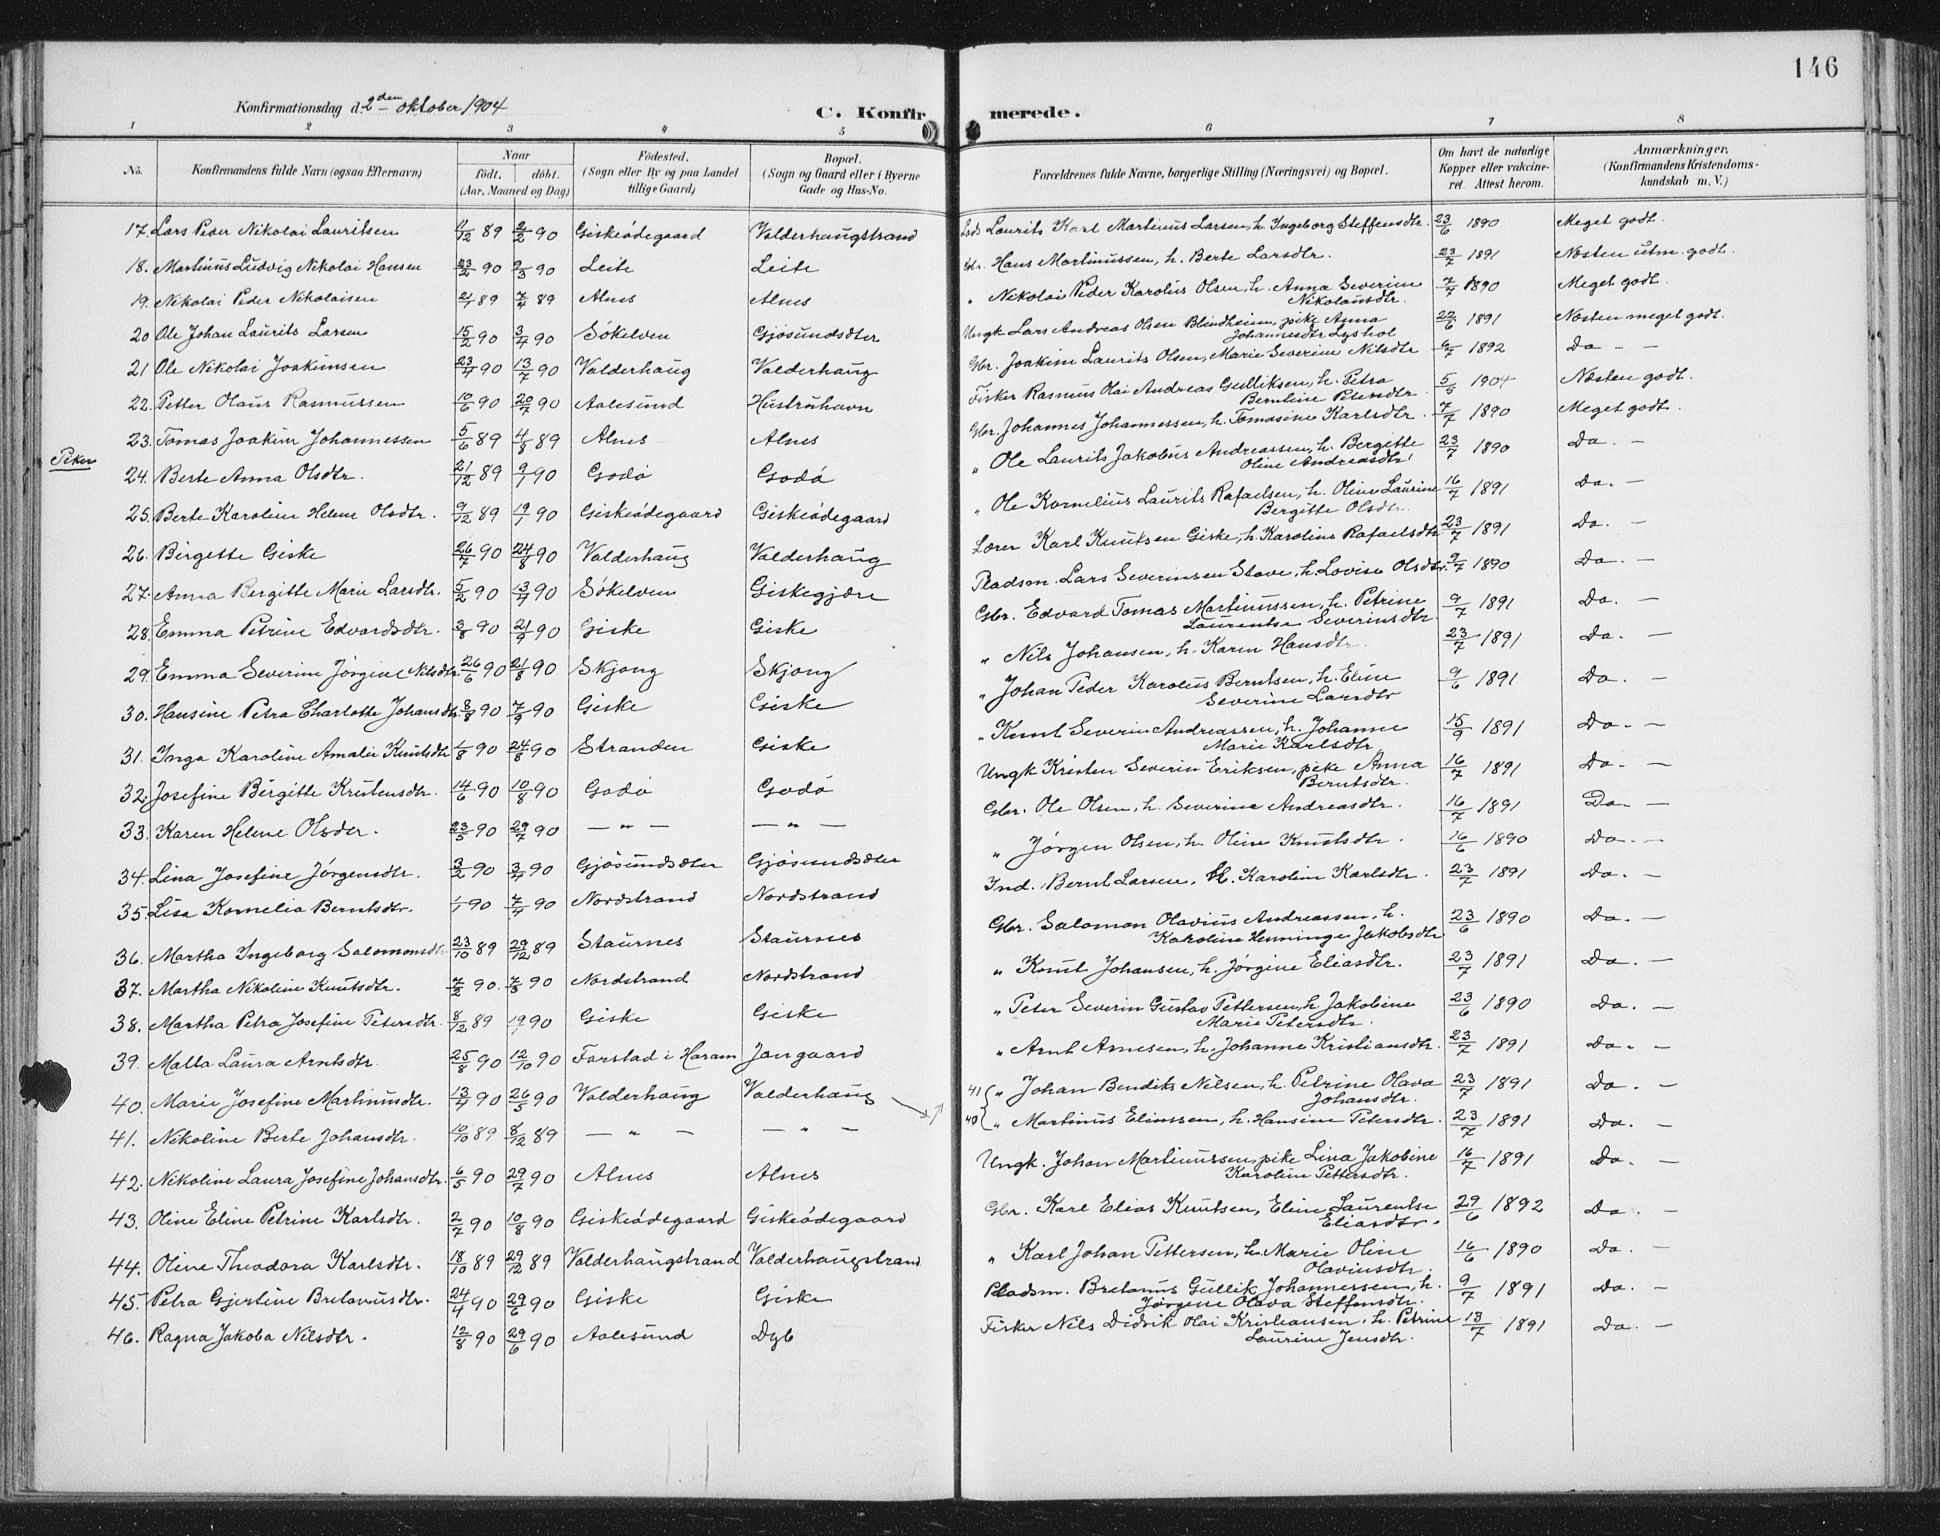 146
Konfirmationsdag d. 2den oktober 1904
C. Konfirmerede.
1 2 3 4 5 6 7 8
No. Konfirmandens fulde Navn (ogsaa Efternavn) Naar født. døbt. (Aar, Maaned og Dag) Fødested. (Sogn eller By og paa Landet tillige Gaard) Bopæl. (Sogn og Gaard eller i Byerne Gade og Hus-No.) Forældrenes fulde Navne, borgerlige Stilling (Næringsvei) og Bopæl. Om havt de naturlige Kopper eller vakcineret. Attest herom. Anmærkninger. (Konfirmandens Kristendomskundskab m. V.)
17. Lars Peder Nikolai Lauritsen 89 2/2 90 Giskeødegaard Valderhaugstrand Laurits Karl Martinus Larsen, h. Ingeborg Steffensdtr. 23/6 1890 Meget godt.
18. Martinus Ludvig Nikolai Hansen 23/2 90 9/3 90 Leite Leite Gbr. Hans Martinussen, h. Berte Larsdtr. 23/7 1891 Næsten utm. godt.
19. Nikolai Peder Nikolaisen 2/1 89 7/4 89 Alnes Alnes " Nikolai Peder Karolus Olsen, h. Anna Severine Nikolausdtr. 7/7 1890 Meget godt.
20 Ole Johan Laurits Larsen 15/2 90 3/4 90 Søkelven Gjøsundsæter Ungk Lars Andreas Olsen Blindheim, pike Anna Johannesdtr Lyshol 22/6 1891 Næsten meget godt.
21 Ole Nikolai Joakimsen 23/4 90 13/7 90 Valderhaug Valderhaug Gbr. Joakim Laurits Olsen, Marie Severine Nilsdtr 6/7 1892 Do - -
22. Petter Olaus Rasmussen 10/6 90 20/7 90 Aalesund Hustruhavn Fisker Rasmus Olai Andreas Gulliksen, h. Petra Berntine Petersdtr 5/5 1904 Næsten godt.
23. Tomas Joakim Johannessen 5/6 89 4/8 89 Alnes Alnes Gbr. Johannes Johannessen, h. Tomasine Karlsdtr. 7/7 1890 Meget godt.
Piker
24. Berte Anna Olsdtr. 21/12 89 9/1 90 Godø Godø " Ole Laurits Jakobus Andreassen, h. Bergitte Oline Andreasdtr 23/7 1890 Do. -
25. Berte Karoline Helene Olsdtr. 9/12 89 19/1 90 Giskeødegaard Giskeødegaard " Ole Kornelius Laurits Rafaelsen, h. Oline Laurine Bergitte Olsdtr. 16/7 1891 Do. -
26. Birgette Giske 26/7 90 24/8 90 Valderhaug Valderhaug Lærer Karl Knutsen Giske, h. Karoline Rafaelsdtr 23/7 1891 Do. -
27. Anna Bergitte Marie Larsdtr. 5/2 90 13/4 90 Søkelven Giskegjære Pladsm. Lars Severinsen Stave, h. Lovise Olsdtr. 9/7 1890 Do. -
28. Emma Petrine Edvardsdtr. 3/8 90 21/9 90 Giske Giske Gbr. Edvard Tomas Martinussen, h. Petrine Laurentse Severinsdtr 9/7 1891 Do. -
29. Emma Severine Jørgine Nilsdtr. 26/6 90 21/8 90 Skjong Skjong " Nils Johansen, h. Karen Hansdtr 23/7 1891 Do. -
30. Hansine Petra Charlotte Johansdtr. 8/8 90 7/9 90 Giske Giske " Johan Peder Karolus Berntsen, h. Eline Severine Larsdtr 9/6 1891 Do. -
31. Inga Karoline Amalie Knutsdtr 1/8 90 24/8 90 Stranden Giske " Knut Severin Andreassen, h. Johanne Marie Karlsdtr 15/9 1891 Do. -
32. Josefine Birgitte Kristensdtr. 14/6 90 10/8 90 Godø Godø Ungk Kristen Severin Eriksen, pike Anna Berntsdtr. 16/7 1891 Do. -
33. Karen Helene Olsdtr. 23/5 90 29/7 90 - " - - " - Gbr. Ole Olsen, h. Severine Andreasdtr. 16/7 1891 Do. -
34. Lina Josefine Jørgensdtr. 3/2 90 3/4 90 Gjøsundsæter Gjøsundsæter " Jørgen Olsen, h. Oline Knutsdtr. 16/6 1890 Do. -
35. Lisa Kornelia Berntsdtr. 1/1 90 7/4 90 Nordstrand Nordstrand Ind. Bernt Larsen, h. Karoline Karlsdtr. 23/7 1891 Do. -
36. Martha Ingeborg Salomonsdtr 23/10 89 29/12 89 Staurnes Staurnes Gbr. Salomon Olavius Andreassen, h. Karoline Henninge Jakobsdtr 23/6 1890 Do. -
37. Martha Nikoline Knutsdtr. 7/2 90. 7/5 90 Nordstrand Nordstrand " Knut Johansen, h. Jørgine Eliasdtr. 23/7 1891 Do. -
38. Martha Petra Josefine Petersdtr. 8/12 89 19/1 90 Giske Giske " Peter Severin Gustav Pettersen, h. Jakobine Marie Petersdtr. 23/6 1890 Do. -
39. Malla Laura Arntsdtr. 25/8 90 12/10 90 Farstad i Haram Jangaard " Arnt Arnesen, h. Johanne Kristiansdtr. 23/7 1891 Do. -
40. Marie Josefine Martinusdtr. 13/4 90 26/5 90 Valderhaug Valderhaug 41 " Johan Bendik Nilsen, h. Petrine Olava Johansdtr. 23/7 1891 Do. -
41. Nikoline Berte Johansdtr. 10/10 89 8/12 89 - " - - " - 40 " Martinus Elinssen, h. Hansine Petersdtr. 23/7 1891 Do. -
42. Nikoline Laura Josefine Johansdtr. 6/5 90 29/7 90 Alnes Alnes Ungk. Johan Martinussen, pike Lina Jakobine Karoline Pettersdtr. 16/7 1891 Do. -
43. Oline Eline Petrine Karlsdtr. 2/7 90 10/8 90 Giskeødegaard Giskeødegaard Gbr. Karl Elias Knutsen, Eline Laurentse Eliasdtr. 29/6 1892 Do. -
44. Oline Theodora Karlsdtr. 18/10 89 29/12 89 Valderhaugstrand Valderhaugstrand " Karl Johan Pettersen, h. Marie Oline Olavinsdtr. 16/6 1890 Do. -
45. Petra Gjertine Bretanusdtr. 24/4 90 29/6 90 Giske Giske Pladsm. Bretanus Gullik Johannessen, h. Jørgine Olava Steffensdtr. 9/7 1891 Do. -
46. Ragna Jakoba Nilsdtr. 12/8 90 29/6 90 Aalesund Dyb Fisker Nils Didrik Olai Kristiansen, h. Petrine Laurine Jensdtr. 13/7 1891 Do. -